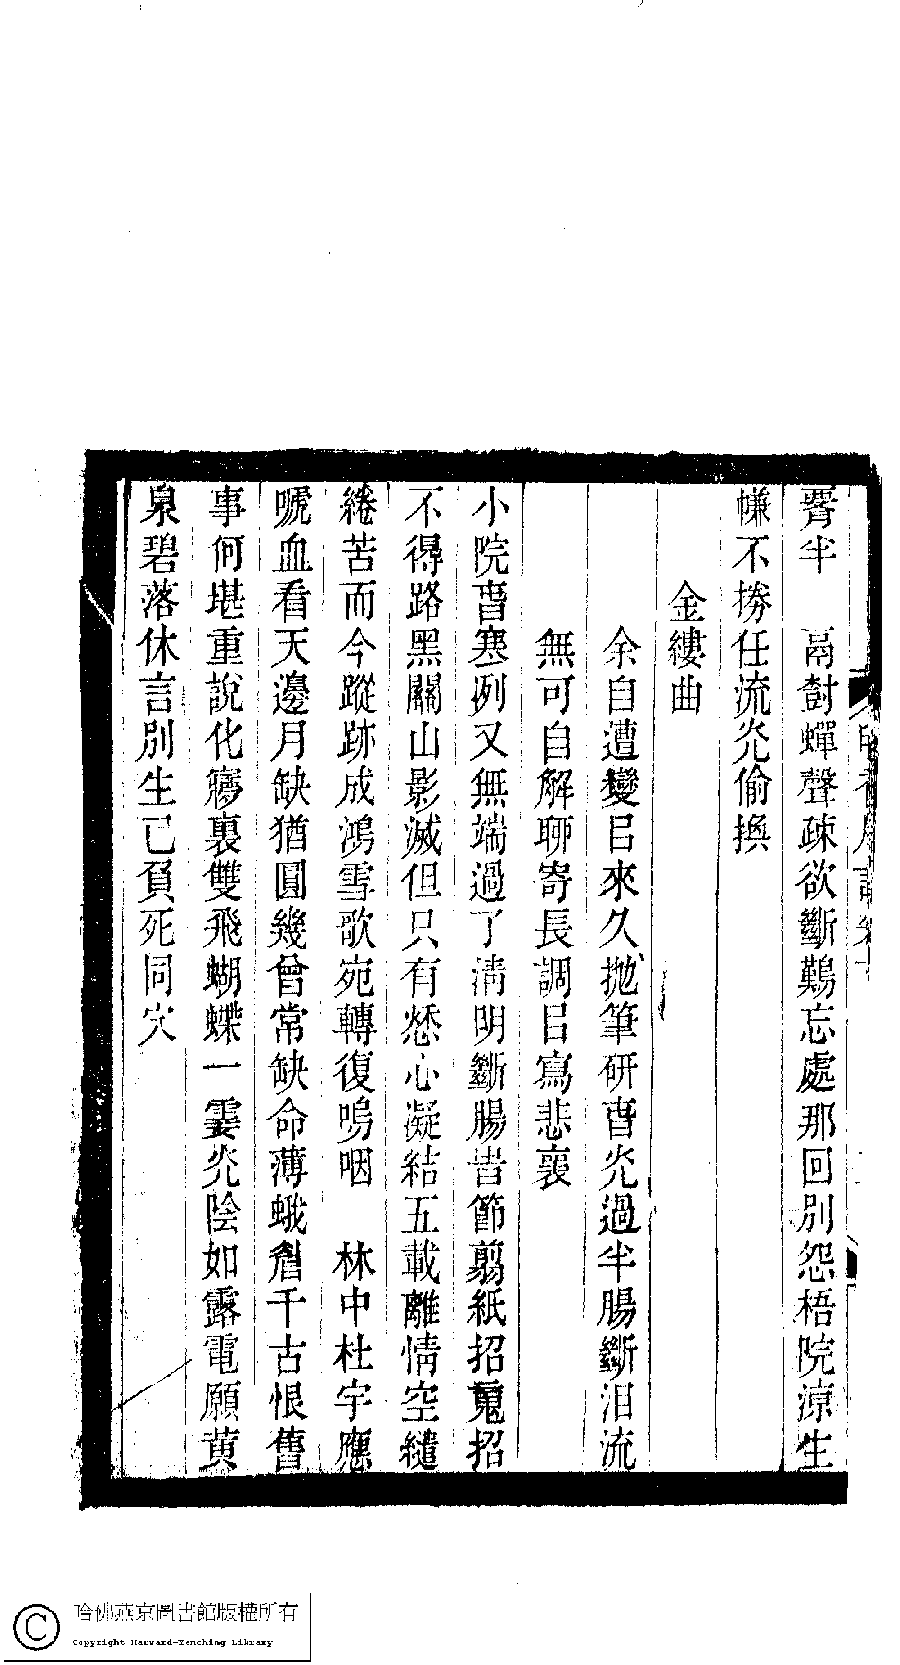 半　鬲尌蟬聲疎欲斷難忘處那回別怨梧院凉生
㡘不任流灮偷換
金縷曲
余自遭變㠯來久抛筆研萅灮過半腸斷泪流
無可自解聊寄長調㠯寫悲褱
小院萅寒冽又無端過了清明斷腸旹節翦紙招䰟招
不得路黑關山影滅但只有愁心凝結五載離情空繾
綣苦而今蹤跡成鴻雪歌宛轉復嗚咽　林中杜宇應
嗁血看天邊月缺猶圓幾曾常缺命薄蛾眉千古恨舊
事何堪重說化㝱裏雙飛蝴蝶一霎灮陰如露電願黃
泉碧落休言別生已負死同穴
哈佛燕京圖書館版權所有
Copyright Harvard-Yenching Library